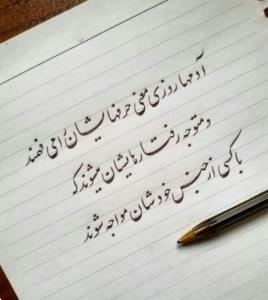 آدمها روزی معنی حرفهایشان را می فهمند
و متوجه رفتارهایشان میشوند که
با کسی از جنس خودشان مواجه شوند